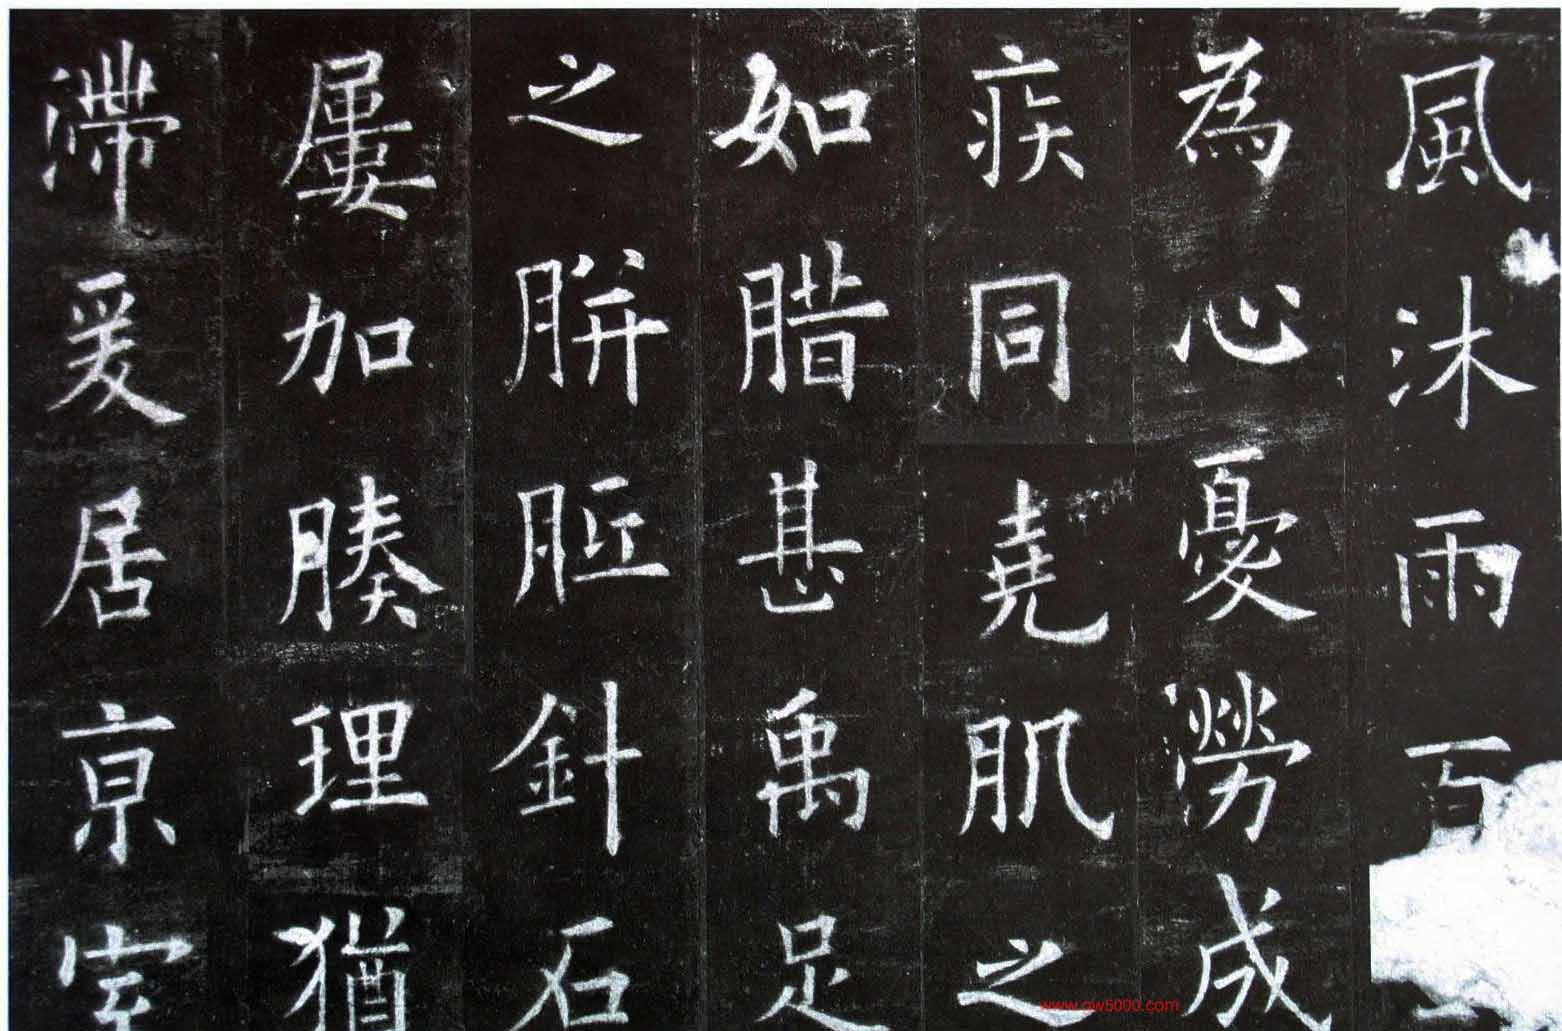 風沐雨百
為心憂勞成
疾同堯肌之
如腊甚禹足
之胼胝針石
屢加腠理猶
滯爰居京室
www.gw5000.com